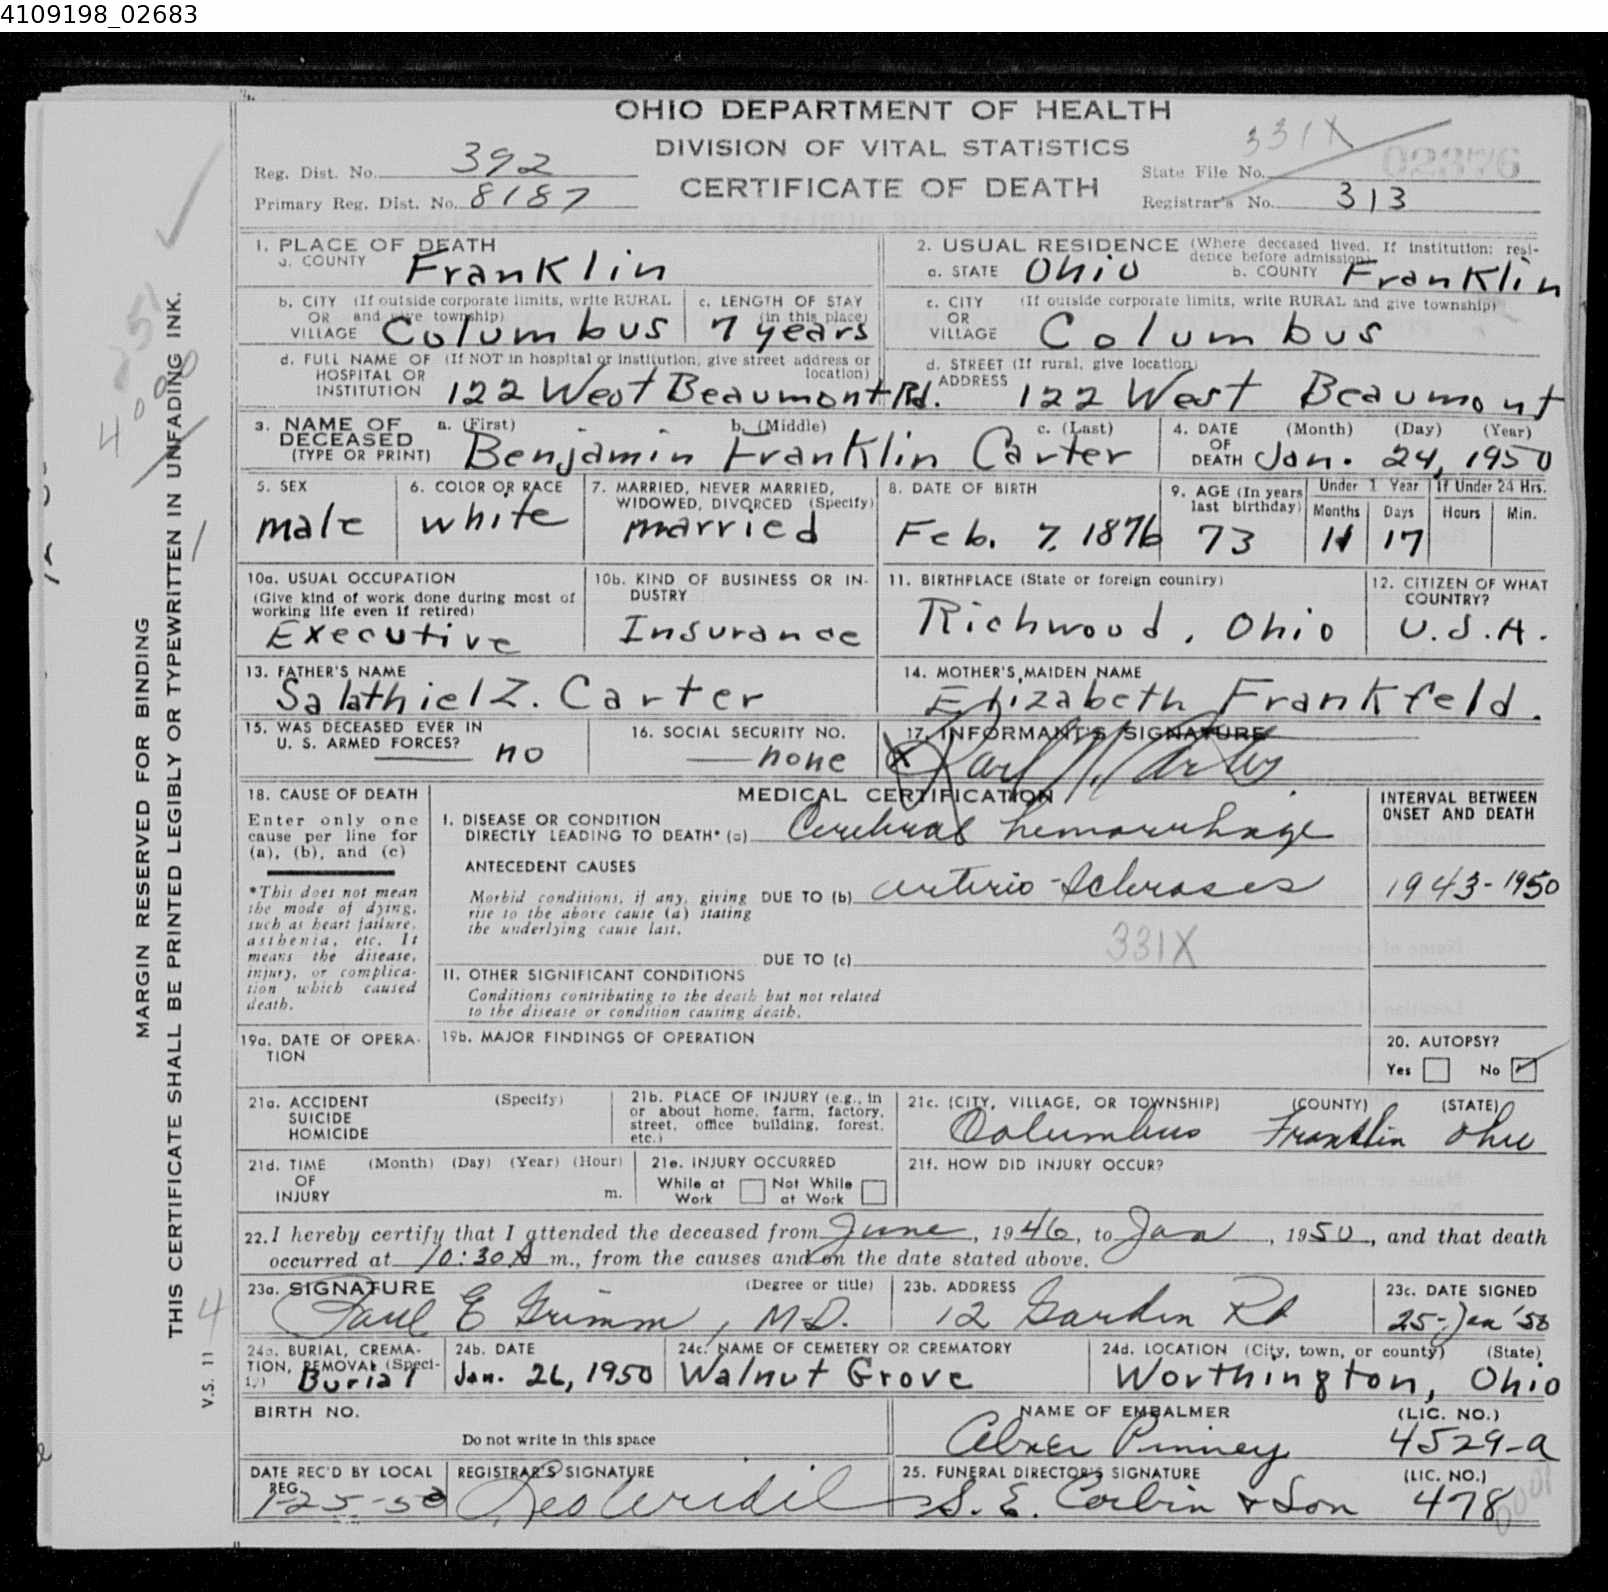 4109198_02683
OHIO DEPARTMENT OF HEALTH
DIVISION OF VITAL STATISTICS
CERTIFICATE OF DEATH
Reg. Dist. No. 392
Primary Reg. Dist. No. 8187
331X
State File No. 02376
Registrar's No. 313
1. PLACE OF DEATH
a. COUNTY Franklin
b. CITY (If outside corporate limits, write RURAL
OR and give township)
VILLAGE Columbus
c. LENGTH OF STAY
(in this place)
7 years
d. FULL NAME OF (If NOT in hospital or institution, give street address or
HOSPITAL OR location)
INSTITUTION 122 West Beaumont Rd.
2. USUAL RESIDENCE (Where deceased lived. If institution: resi-
dence before admission)
a. STATE Ohio b. COUNTY Franklin
c. CITY (If outside corporate limits, write RURAL and give township)
OR
VILLAGE Columbus
d. STREET (If rural, give location)
ADDRESS 122 West Beaumont
3. NAME OF a. (First) b. (Middle) c. (Last)
DECEASED
(TYPE OR PRINT) Benjamin Franklin Carter
4. DATE (Month) (Day) (Year)
OF
DEATH Jan. 24, 1950
5. SEX
male
6. COLOR OR RACE
white
7. MARRIED, NEVER MARRIED,
WIDOWED, DIVORCED (Specify)
married
8. DATE OF BIRTH
Feb. 7, 1876
9. AGE (In years
last birthday)
73
Under 1 Year
Months Days
11 17
If Under 24 Hrs.
Hours Min.
10a. USUAL OCCUPATION
(Give kind of work done during most of
working life even if retired)
Executive
10b. KIND OF BUSINESS OR IN-
DUSTRY
Insurance
11. BIRTHPLACE (State or foreign country)
Richwood, Ohio
12. CITIZEN OF WHAT
COUNTRY?
U.S.A.
13. FATHER'S NAME
Salathiel Z. Carter
14. MOTHER'S MAIDEN NAME
Elizabeth Frankfeld.
15. WAS DECEASED EVER IN
U. S. ARMED FORCES?
no
16. SOCIAL SECURITY NO.
none
17. INFORMANT'S SIGNATURE
X
18. CAUSE OF DEATH
Enter only one
cause per line for
(a), (b), and (c)
*This does not mean
the mode of dying,
such as heart failure,
asthenia, etc. It
means the disease,
injury, or complica-
tion which caused
death.
MEDICAL CERTIFICATION
I. DISEASE OR CONDITION
DIRECTLY LEADING TO DEATH* (a) Cerebral hemorrhage
ANTECEDENT CAUSES
Morbid conditions, if any, giving
rise to the above cause (a) stating
the underlying cause last.
DUE TO (b) arterio-scleroses
331X
DUE TO (c)
II. OTHER SIGNIFICANT CONDITIONS
Conditions contributing to the death but not related
to the disease or condition causing death.
INTERVAL BETWEEN
ONSET AND DEATH
1943-1950
19a. DATE OF OPERA-
TION
19b. MAJOR FINDINGS OF OPERATION
20. AUTOPSY?
Yes No
21a. ACCIDENT (Specify)
SUICIDE
HOMICIDE
21b. PLACE OF INJURY (e.g., in
or about home, farm, factory,
street, office building, forest,
etc.)
21c. (CITY, VILLAGE, OR TOWNSHIP) (COUNTY) (STATE)
Columbus Franklin Ohio
21d. TIME (Month) (Day) (Year) (Hour)
OF
INJURY m.
21e. INJURY OCCURRED
While at Work Not While at Work
21f. HOW DID INJURY OCCUR?
22. I hereby certify that I attended the deceased from June, 1946, to Jan, 1950, and that death
occurred at 10:30 A m., from the causes and on the date stated above.
23a. SIGNATURE (Degree or title)
Paul E Grimm, M.D.
23b. ADDRESS
12 Garden Rd
23c. DATE SIGNED
25-Jan '50
24a. BURIAL, CREMA-
TION, REMOVAL (Speci-
fy) Burial
24b. DATE
Jan. 26, 1950
24c. NAME OF CEMETERY OR CREMATORY
Walnut Grove
24d. LOCATION (City, town, or county) (State)
Worthington, Ohio
BIRTH NO.
Do not write in this space
NAME OF EMBALMER (LIC. NO.)
Abner Pinney 4529-a
DATE REC'D BY LOCAL
REG.
1-25-50
REGISTRAR'S SIGNATURE
25. FUNERAL DIRECTOR'S SIGNATURE (LIC. NO.)
S. E. Corbin & Son 478
MARGIN RESERVED FOR BINDING
THIS CERTIFICATE SHALL BE PRINTED LEGIBLY OR TYPEWRITTEN IN UNFADING INK.
V.S. 11
4